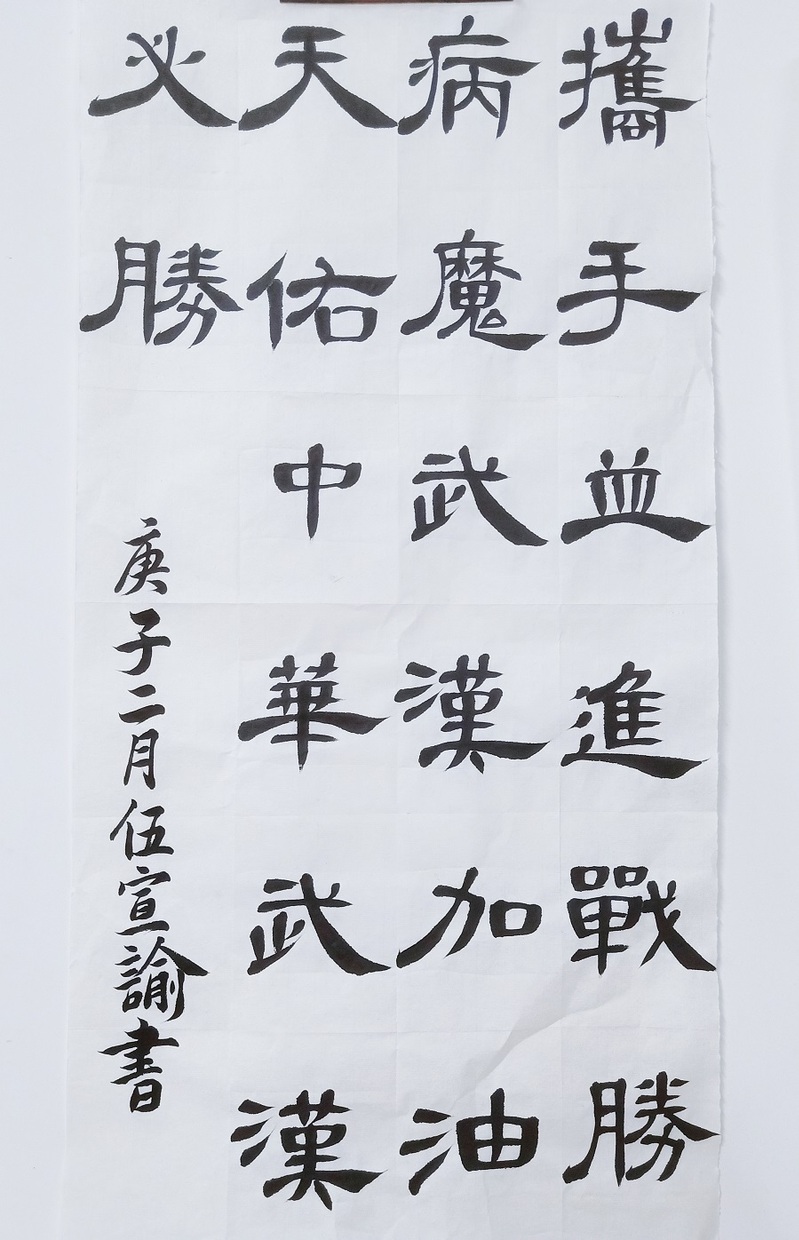 攜手並進戰勝
病魔武漢加油
天佑中華武漢
必勝
庚子二月伍宣諭書